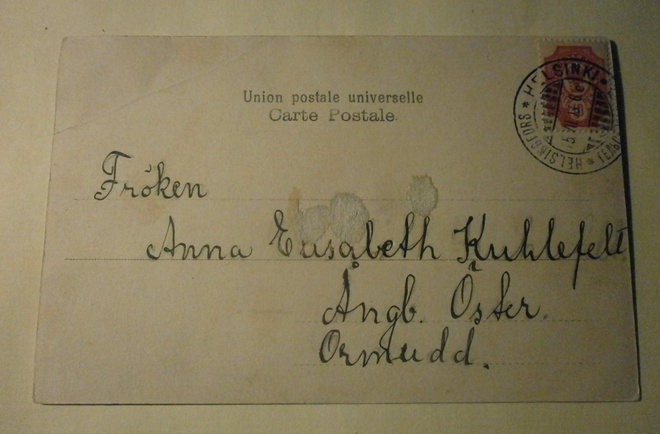 Union postale universelle
Carte Postale.
Fröken
Anna Elisabeth Kuhlefelt
Ångb. Öster.
Ormudd.
HELSINKI
HELSINGFORS
HELSINGFORS